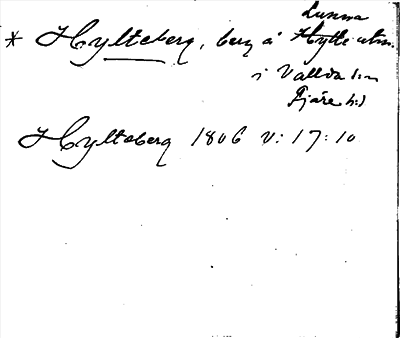 Lunna
* Hylteberg, berg å Hylte utm.
i Vallda sn
Fjäre hd
Hylteberg 1806 V: 17: 10